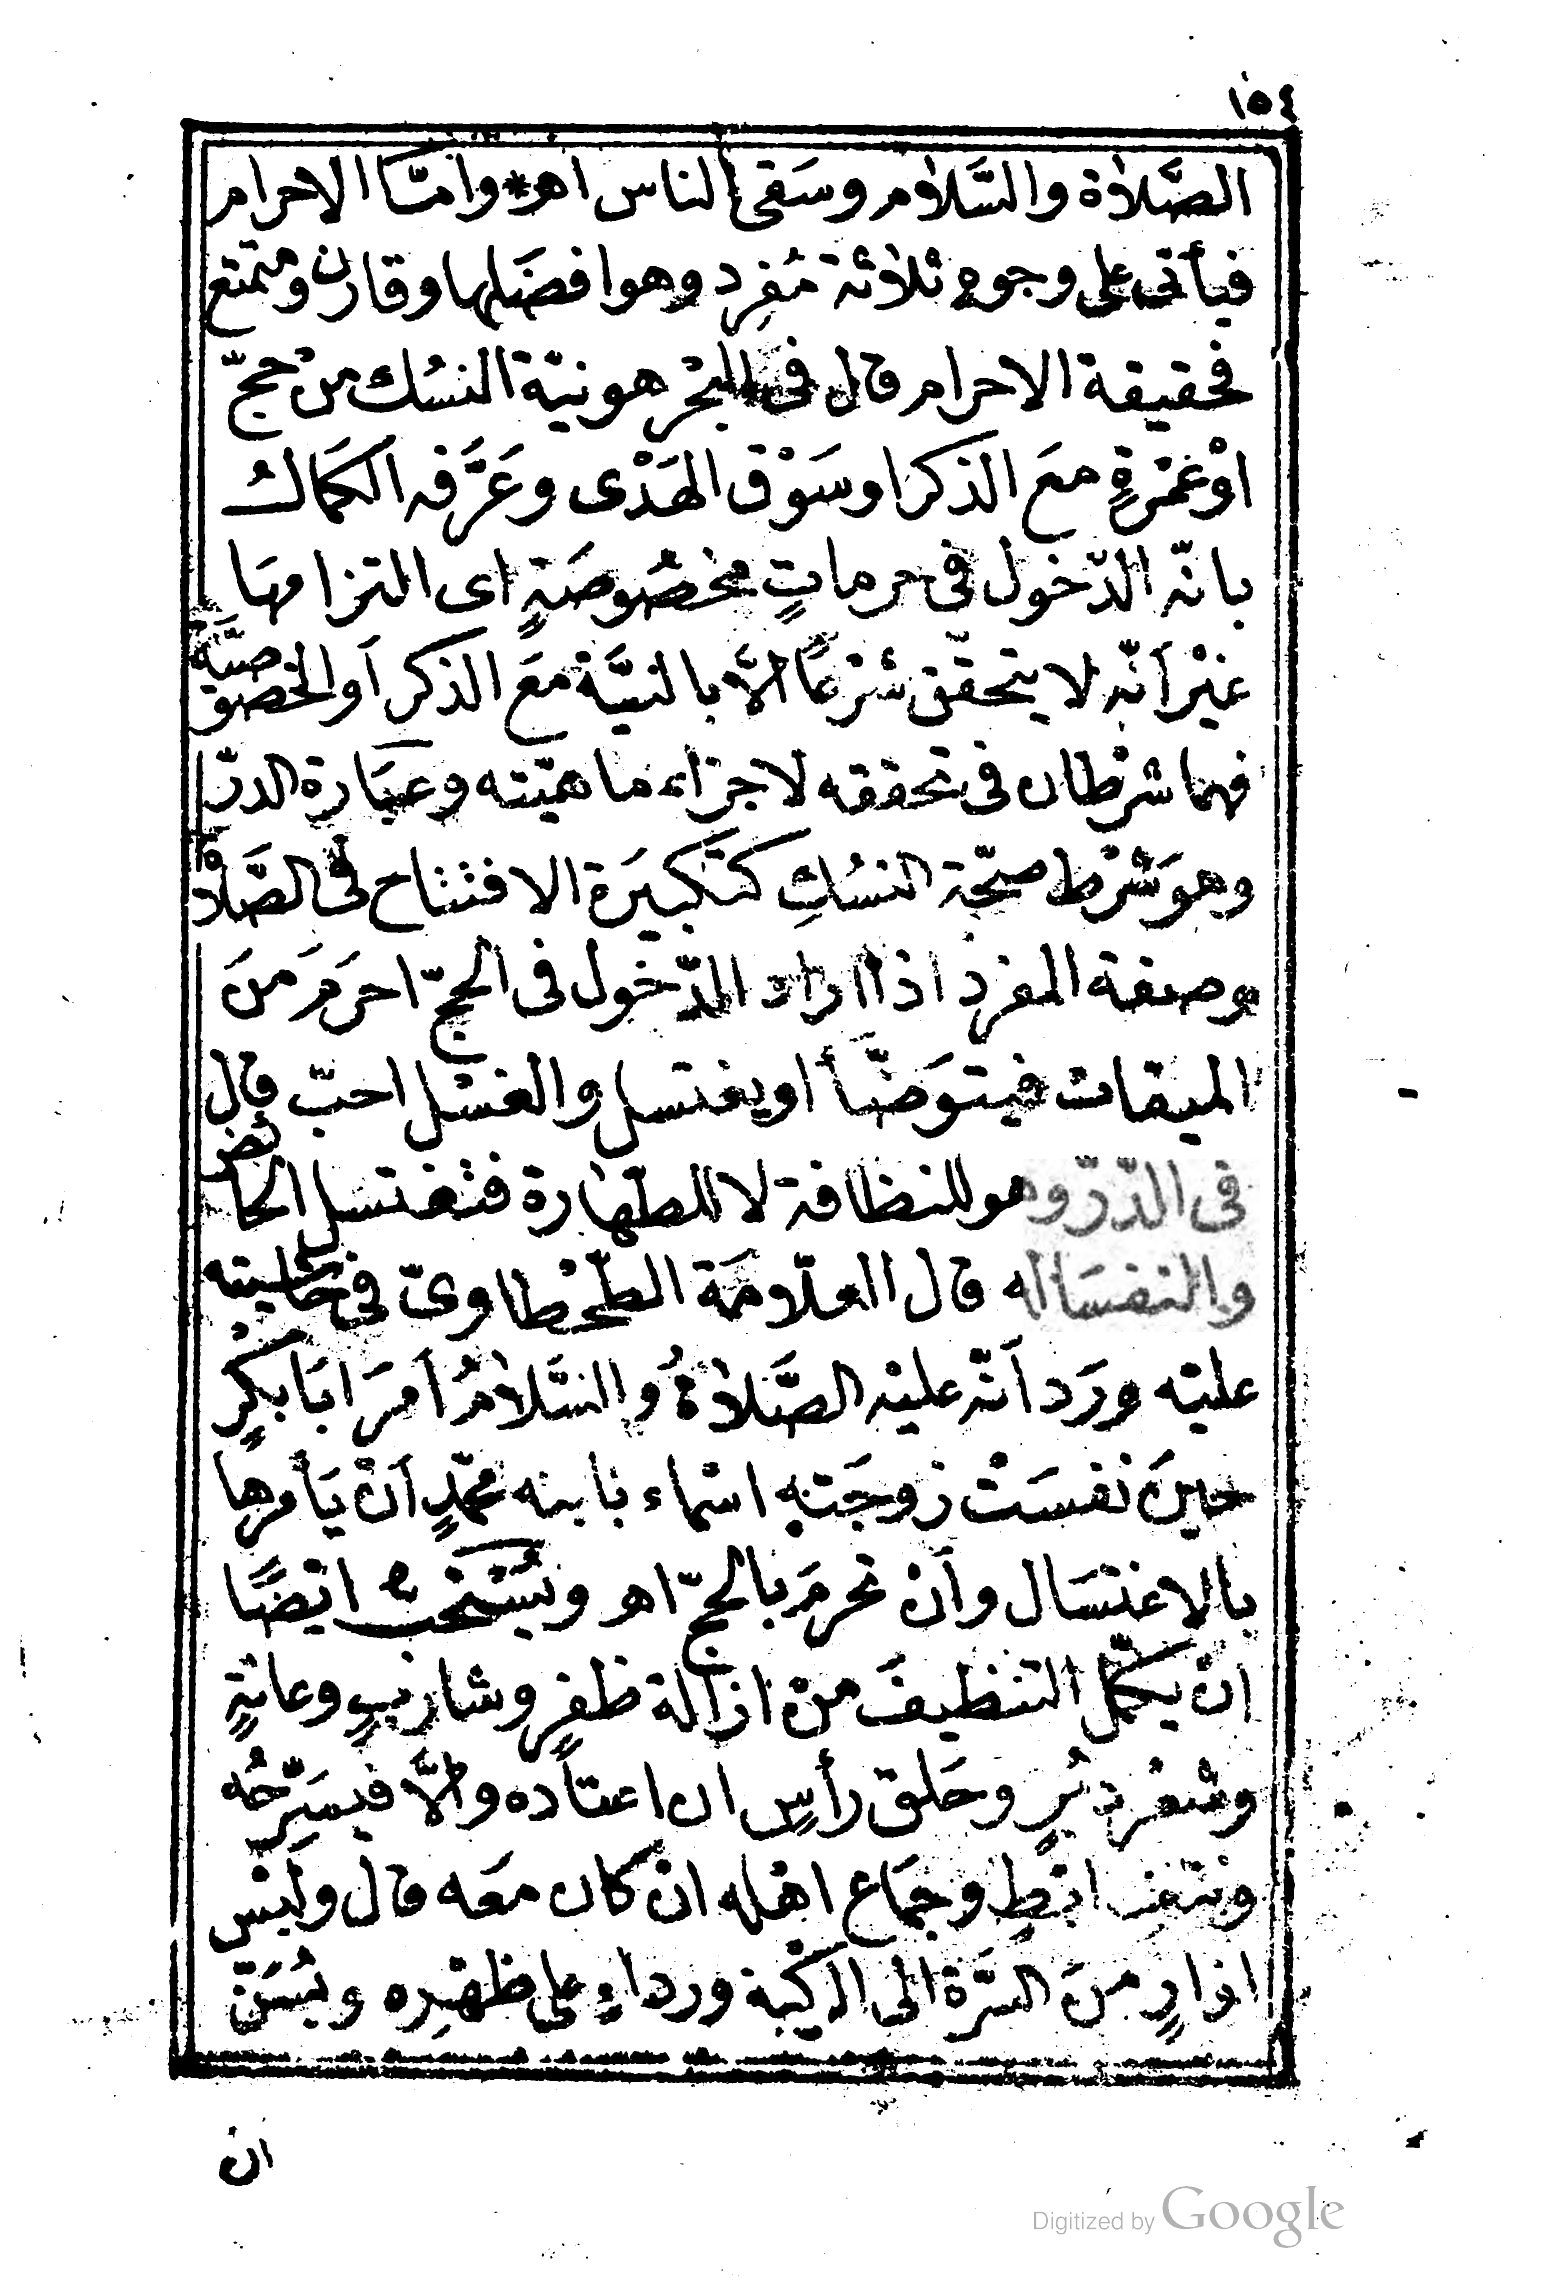 ١٥٤
الصَّلاة والسَّلام وسَقى الناس اهـ * وامّا الاحرام
فيأتى على وجوهٍ ثلاثة مُفرِد وهو افضَلها وقارن ومتمتع
فحقيقة الاحرام قال فى البحر هو نيّة النسُك من حجّ
اوْ عُمْرَةٍ معَ الذكر او سَوْق الهَدْى وعَرَّفه الكمَالُ
بانّه الدّخول فى حرماتٍ مخصُوصَةٍ اى التزامهَا
غيْر أنّه لا يتحقّق شرْعًا الاَّ بالنيَّة معَ الذكر أو الخصوصيَّة
فهما شرْطان فى تحققه لا جزاء ماهيّته وعبَارة الدرّ
وهوَ شرْط صحّة النسُكِ كتكبيرَة الافتتاح فى الصَّلاة
وصفة المفرد اذا اراد الدّخول فى الحجّ احرَمَ منَ
الميقات فيتوَضّأ او يغتسل والغسْل احبّ قال
فى الدّرّ وهو للنظافة لا للطّهارة فتغتسل الحائض
والنفسَا اه قال العلّامَة الطّحْطاوىّ فى حاشيته
عليْه ورَد أنّه عليْه الصَّلاةُ والسَّلامُ أمَرَ ابَا بكرٍ
حينَ نفسَتْ زوجَتهِ اسْماء بابنه محمّدٍ أنْ يَأمرها
بالاغتسَال وأنْ تحرمَ بالحجّ اهـ ويُسْتحَبّ ايْضًا
انْ يكمّل التنظيفَ منْ ازالة ظفرٍ وشاربٍ وعانةٍ
وشعْر دبُرٍ وحَلق رأسٍ ان اعتاده والاَّ فيسَرّحُه
ونتف ابْطٍ وجمَاع اهْله انْ كان معَه قال ولبْس
ازارٍ منَ السّرَّة الى الركْبة ورداءٍ على ظهْرِه ويُسَنّ
ان
Digitized by Google